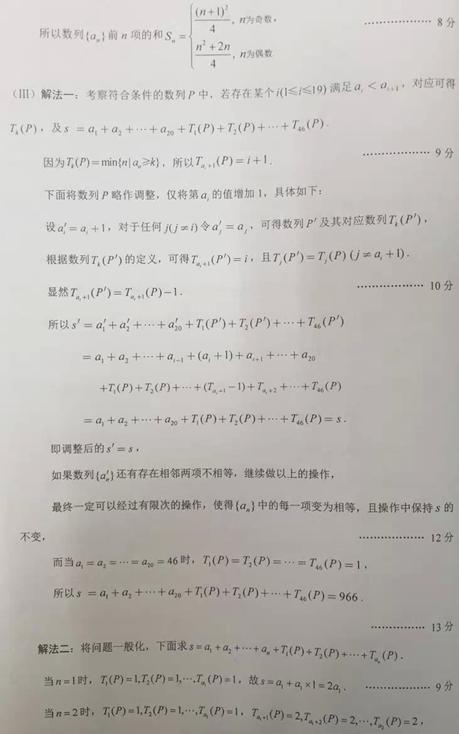 所以数列{aₙ}前 n 项的和 Sₙ = { (n+1)²/4, n为奇数, (n²+2n)/4, n为偶数 ……………… 8 分
(III) 解法一：考察符合条件的数列 P 中，若存在某个 i(1≤i≤19) 满足 aᵢ < aᵢ₊₁，对应可得
Tₖ(P)，及 s = a₁ + a₂ + ⋯ + a₂₀ + T₁(P) + T₂(P) + ⋯ + T₄₆(P).
因为 Tₖ(P) = min{n | aₙ ≥ k}，所以 T_{aᵢ+1}(P) = i + 1. ……………… 9 分
下面将数列 P 略作调整，仅将第 aᵢ 的值增加 1，具体如下：
设 a′ᵢ = aᵢ + 1，对于任何 j(j ≠ i) 令 a′ⱼ = aⱼ，可得数列 P′ 及其对应数列 Tₖ(P′)，
根据数列 Tₖ(P′) 的定义，可得 T_{aᵢ+1}(P′) = i，且 Tⱼ(P′) = Tⱼ(P) (j ≠ aᵢ + 1).
显然 T_{aᵢ+1}(P′) = T_{aᵢ+1}(P) − 1. ……………… 10 分
所以 s′ = a′₁ + a′₂ + ⋯ + a′₂₀ + T₁(P′) + T₂(P′) + ⋯ + T₄₆(P′)
= a₁ + a₂ + ⋯ + aᵢ₋₁ + (aᵢ + 1) + aᵢ₊₁ + ⋯ + a₂₀
+T₁(P) + T₂(P) + ⋯ + (T_{aᵢ+1} − 1) + T_{aᵢ+2} + ⋯ + T₄₆(P)
= a₁ + a₂ + ⋯ + a₂₀ + T₁(P) + T₂(P) + ⋯ + T₄₆(P) = s.
即调整后的 s′ = s，
如果数列{a′ₙ}还有存在相邻两项不相等，继续做以上的操作，
最终一定可以经过有限次的操作，使得{aₙ}中的每一项变为相等，且操作中保持 s 的
不变， ……………… 12 分
而当 a₁ = a₂ = ⋯ = a₂₀ = 46 时，T₁(P) = T₂(P) = ⋯ = T₄₆(P) = 1，
所以 s = a₁ + a₂ + ⋯ + a₂₀ + T₁(P) + T₂(P) + ⋯ + T₄₆(P) = 966.
……………… 13 分
解法二：将问题一般化，下面求 s = a₁ + a₂ + ⋯ + aₙ + T₁(P) + T₂(P) + ⋯ + T_{aₙ}(P).
当 n = 1 时，T₁(P) = 1, T₂(P) = 1, ⋯, T_{a₁}(P) = 1，故 s = a₁ + a₁ × 1 = 2a₁. ……………… 9 分
当 n = 2 时，T₁(P) = 1, T₂(P) = 1, ⋯, T_{a₁}(P) = 1，T_{a₁+1}(P) = 2, T_{a₁+2}(P) = 2, ⋯, T_{a₂}(P) = 2，